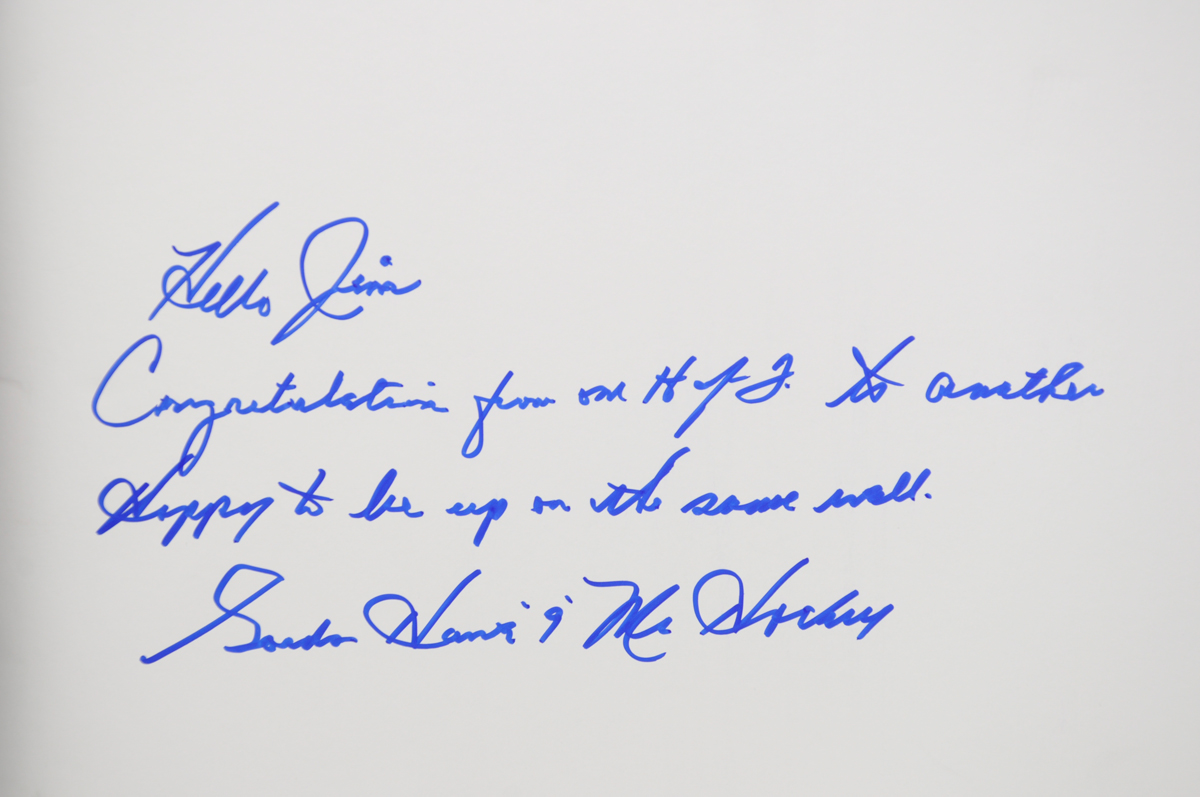 Hello Jim
Congratulation from one H of F. to another
Happy to be up on the same wall.
Gordie Howe "9" Mr Hockey